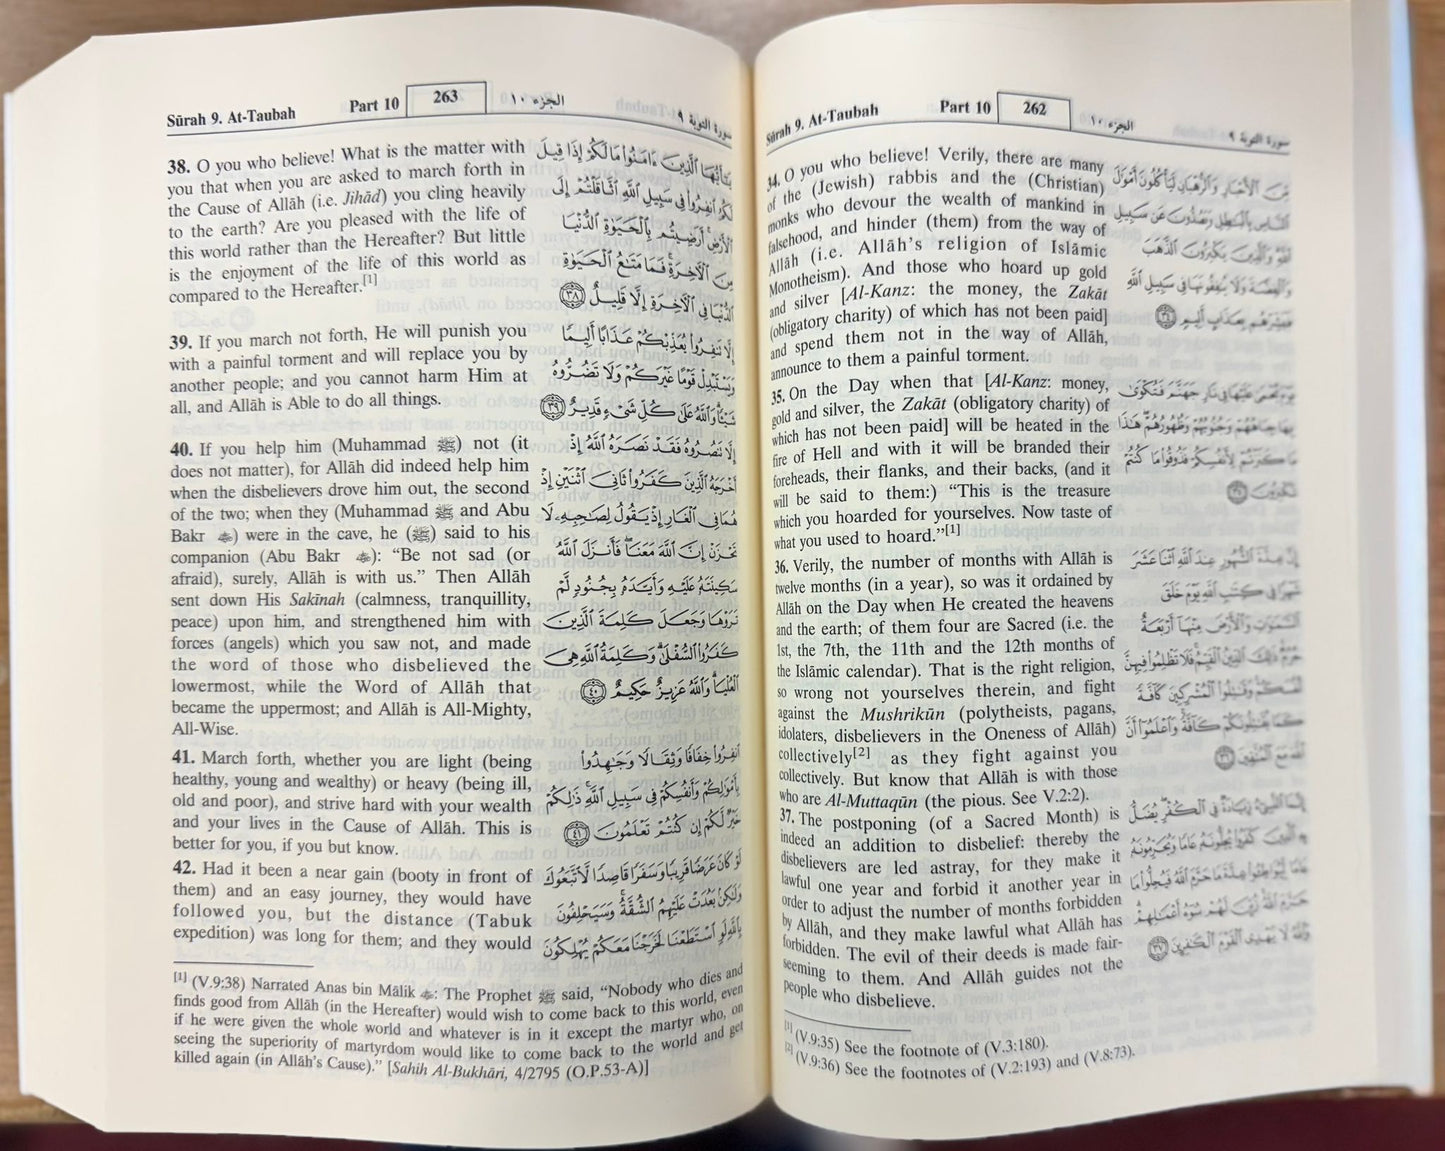 Sūrah 9. At-Taubah Part 10 262 الجزء ١٠ سورة التوبة ٩
34. O you who believe! Verily, there are many
of the (Jewish) rabbis and the (Christian)
monks who devour the wealth of mankind in
falsehood, and hinder (them) from the way of
Allāh (i.e. Allāh's religion of Islāmic
Monotheism). And those who hoard up gold
and silver [Al-Kanz: the money, the Zakāt
(obligatory charity) of which has not been paid]
and spend them not in the way of Allāh,
announce to them a painful torment.
35. On the Day when that [Al-Kanz: money,
gold and silver, the Zakāt (obligatory charity) of
which has not been paid] will be heated in the
fire of Hell and with it will be branded their
foreheads, their flanks, and their backs, (and it
will be said to them:) “This is the treasure
which you hoarded for yourselves. Now taste of
what you used to hoard.”[1]
36. Verily, the number of months with Allāh is
twelve months (in a year), so was it ordained by
Allāh on the Day when He created the heavens
and the earth; of them four are Sacred (i.e. the
1st, the 7th, the 11th and the 12th months of
the Islāmic calendar). That is the right religion,
so wrong not yourselves therein, and fight
against the Mushrikūn (polytheists, pagans,
idolaters, disbelievers in the Oneness of Allāh)
collectively[2] as they fight against you
collectively. But know that Allāh is with those
who are Al-Muttaqūn (the pious. See V.2:2).
37. The postponing (of a Sacred Month) is
indeed an addition to disbelief: thereby the
disbelievers are led astray, for they make it
lawful one year and forbid it another year in
order to adjust the number of months forbidden
by Allāh, and they make lawful what Allāh has
forbidden. The evil of their deeds is made fair-
seeming to them. And Allāh guides not the
people who disbelieve.
[1] (V.9:35) See the footnote of (V.3:180).
[2] (V.9:36) See the footnotes of (V.2:193) and (V.8:73).
Sūrah 9. At-Taubah Part 10 263 الجزء ١٠ سورة التوبة ٩
38. O you who believe! What is the matter with
you that when you are asked to march forth in
the Cause of Allāh (i.e. Jihād) you cling heavily
to the earth? Are you pleased with the life of
this world rather than the Hereafter? But little
is the enjoyment of the life of this world as
compared to the Hereafter.[1]
39. If you march not forth, He will punish you
with a painful torment and will replace you by
another people; and you cannot harm Him at
all, and Allāh is Able to do all things.
40. If you help him (Muhammad ﷺ) not (it
does not matter), for Allāh did indeed help him
when the disbelievers drove him out, the second
of the two; when they (Muhammad ﷺ and Abu
Bakr رضي الله عنه) were in the cave, he (ﷺ) said to his
companion (Abu Bakr رضي الله عنه): “Be not sad (or
afraid), surely, Allāh is with us.” Then Allāh
sent down His Sakīnah (calmness, tranquillity,
peace) upon him, and strengthened him with
forces (angels) which you saw not, and made
the word of those who disbelieved the
lowermost, while the Word of Allāh that
became the uppermost; and Allāh is All-Mighty,
All-Wise.
41. March forth, whether you are light (being
healthy, young and wealthy) or heavy (being ill,
old and poor), and strive hard with your wealth
and your lives in the Cause of Allāh. This is
better for you, if you but know.
42. Had it been a near gain (booty in front of
them) and an easy journey, they would have
followed you, but the distance (Tabuk
expedition) was long for them; and they would
يَٰٓأَيُّهَا ٱلَّذِينَ ءَامَنُوا۟ مَا لَكُمْ إِذَا قِيلَ
لَكُمُ ٱنفِرُوا۟ فِى سَبِيلِ ٱللَّهِ ٱثَّاقَلْتُمْ إِلَى
ٱلْأَرْضِ أَرَضِيتُم بِٱلْحَيَوٰةِ ٱلدُّنْيَا
مِنَ ٱلْـَٔاخِرَةِ فَمَا مَتَٰعُ ٱلْحَيَوٰةِ
ٱلدُّنْيَا فِى ٱلْـَٔاخِرَةِ إِلَّا قَلِيلٌ ٣٨
إِلَّا تَنفِرُوا۟ يُعَذِّبْكُمْ عَذَابًا أَلِيمًا
وَيَسْتَبْدِلْ قَوْمًا غَيْرَكُمْ وَلَا تَضُرُّوهُ
شَيْـًٔا وَٱللَّهُ عَلَىٰ كُلِّ شَىْءٍ قَدِيرٌ ٣٩
إِلَّا تَنصُرُوهُ فَقَدْ نَصَرَهُ ٱللَّهُ إِذْ
أَخْرَجَهُ ٱلَّذِينَ كَفَرُوا۟ ثَانِىَ ٱثْنَيْنِ إِذْ
هُمَا فِى ٱلْغَارِ إِذْ يَقُولُ لِصَٰحِبِهِۦ لَا
تَحْزَنْ إِنَّ ٱللَّهَ مَعَنَا فَأَنزَلَ ٱللَّهُ
سَكِينَتَهُۥ عَلَيْهِ وَأَيَّدَهُۥ بِجُنُودٍ لَّمْ
تَرَوْهَا وَجَعَلَ كَلِمَةَ ٱلَّذِينَ
كَفَرُوا۟ ٱلسُّفْلَىٰ وَكَلِمَةُ ٱللَّهِ هِىَ
ٱلْعُلْيَا وَٱللَّهُ عَزِيزٌ حَكِيمٌ ٤٠
ٱنفِرُوا۟ خِفَافًا وَثِقَالًا وَجَٰهِدُوا۟
بِأَمْوَٰلِكُمْ وَأَنفُسِكُمْ فِى سَبِيلِ ٱللَّهِ ذَٰلِكُمْ
خَيْرٌ لَّكُمْ إِن كُنتُمْ تَعْلَمُونَ ٤١
لَوْ كَانَ عَرَضًا قَرِيبًا وَسَفَرًا قَاصِدًا لَّٱتَّبَعُوكَ
وَلَٰكِنۢ بَعُدَتْ عَلَيْهِمُ ٱلشُّقَّةُ وَسَيَحْلِفُونَ
بِٱللَّهِ لَوِ ٱسْتَطَعْنَا لَخَرَجْنَا مَعَكُمْ يُهْلِكُونَ
[1] (V.9:38) Narrated Anas bin Mālik رضي الله عنه: The Prophet ﷺ said, “Nobody who dies and
finds good from Allāh (in the Hereafter) would wish to come back to this world, even
if he were given the whole world and whatever is in it except the martyr who, on
seeing the superiority of martyrdom would like to come back to the world and get
killed again (in Allāh's Cause).” [Sahih Al-Bukhāri, 4/2795 (O.P.53-A)]